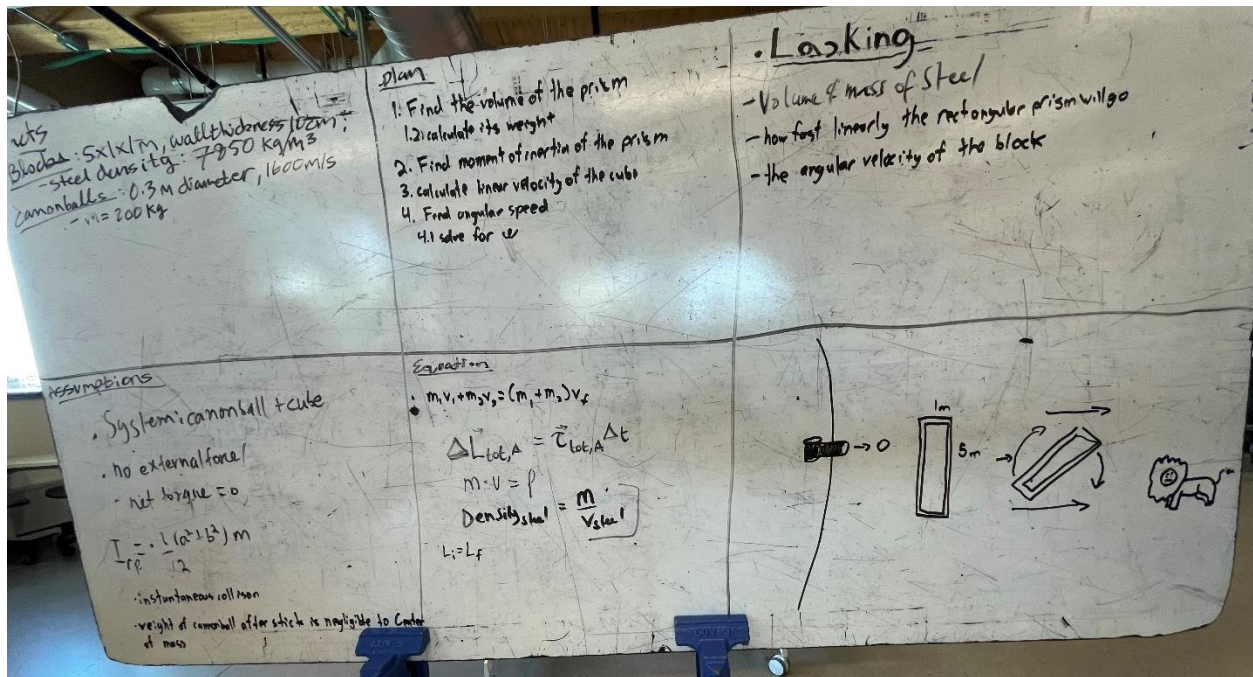 Blocks: 5x1x1m, wall thickness 10cm;
- steel density: 7850 kg/m3
canonballs: 0.3 m diameter, 1600m/s
- m = 200 kg
plan
1. Find the volume of the prism
1.2: calculate its weight
2. Find moment of inertia of the prism
3. calculate linear velocity of the cube
4. Find angular speed
4.1 solve for ω
• Lacking
- Volume & mass of Steel
- how fast linearly the rectangular prism will go
- the angular velocity of the block
Assumptions
• System: canonball + cube
• no external force/
- net torque = 0
I_rp = 1/12 (a²+b²) m
• instuntaneous collison
• weight of cannonball after stick is negligible to Center
of mass
Equation
• m₁v₁+m₂v₂=(m₁+m₂)v_f
ΔL_tot,A = τ_tot,A Δt
m·v = p
Density_steel = m/V_steel
L_i=L_f
→ 0
1m
5m